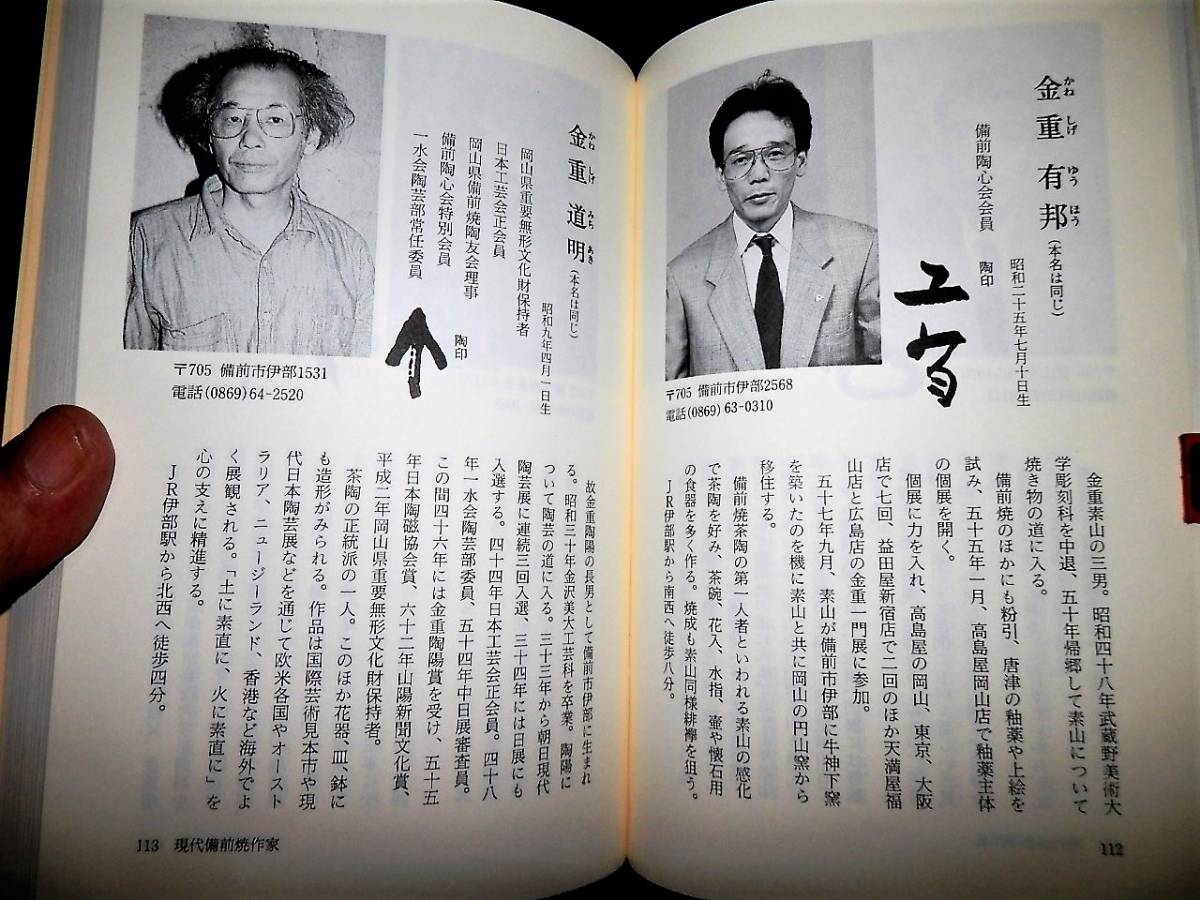 金重有邦（本名は同じ）
かね しげ ゆう ほう
昭和二十五年七月十日生
備前陶心会会員
陶印
〒705 備前市伊部2568
電話(0869)63-0310
金重素山の三男。昭和四十八年武蔵野美術大
学彫刻科を中退、五十年帰郷して素山について
焼き物の道に入る。
備前焼のほかにも粉引、唐津の釉薬や上絵を
試み、五十五年一月、高島屋岡山店で釉薬主体
の個展を開く。
個展に力を入れ、高島屋の岡山、東京、大阪
店で七回、益田屋新宿店で二回のほか天満屋福
山店と広島店の金重一門展に参加。
五十七年九月、素山が備前市伊部に牛神下窯
を築いたのを機に素山と共に岡山の円山窯から
移住する。
備前焼茶陶の第一人者といわれる素山の感化
で茶陶を好み、茶碗、花入、水指、壷や懐石用
の食器を多く作る。焼成も素山同様緋襷を狙う。
ＪＲ伊部駅から南西へ徒歩八分。
112
金重道明（本名は同じ）
かね しげ みち あき
昭和九年四月一日生
岡山県重要無形文化財保持者
日本工芸会正会員
岡山県備前焼陶友会理事
備前陶心会特別会員
一水会陶芸部常任委員
陶印
〒705 備前市伊部1531
電話(0869)64-2520
故金重陶陽の長男として備前市伊部に生まれ
る。昭和三十年金沢美大工芸科を卒業。陶陽に
ついて陶芸の道に入る。三十三年から朝日現代
陶芸展に連続三回入選、三十四年には日展にも
入選する。四十四年日本工芸会正会員。四十八
年一水会陶芸部委員、五十四年中日展審査員。
この間四十六年には金重陶陽賞を受け、五十五
年日本陶磁協会賞、六十二年山陽新聞文化賞、
平成二年岡山県重要無形文化財保持者。
茶陶の正統派の一人。このほか花器、皿、鉢に
も造形がみられる。作品は国際芸術見本市や現
代日本陶芸展などを通じて欧米各国やオースト
ラリア、ニュージーランド、香港など海外でよ
く展観される。「土に素直に、火に素直に」を
心の支えに精進する。
ＪＲ伊部駅から北西へ徒歩四分。
113 現代備前焼作家